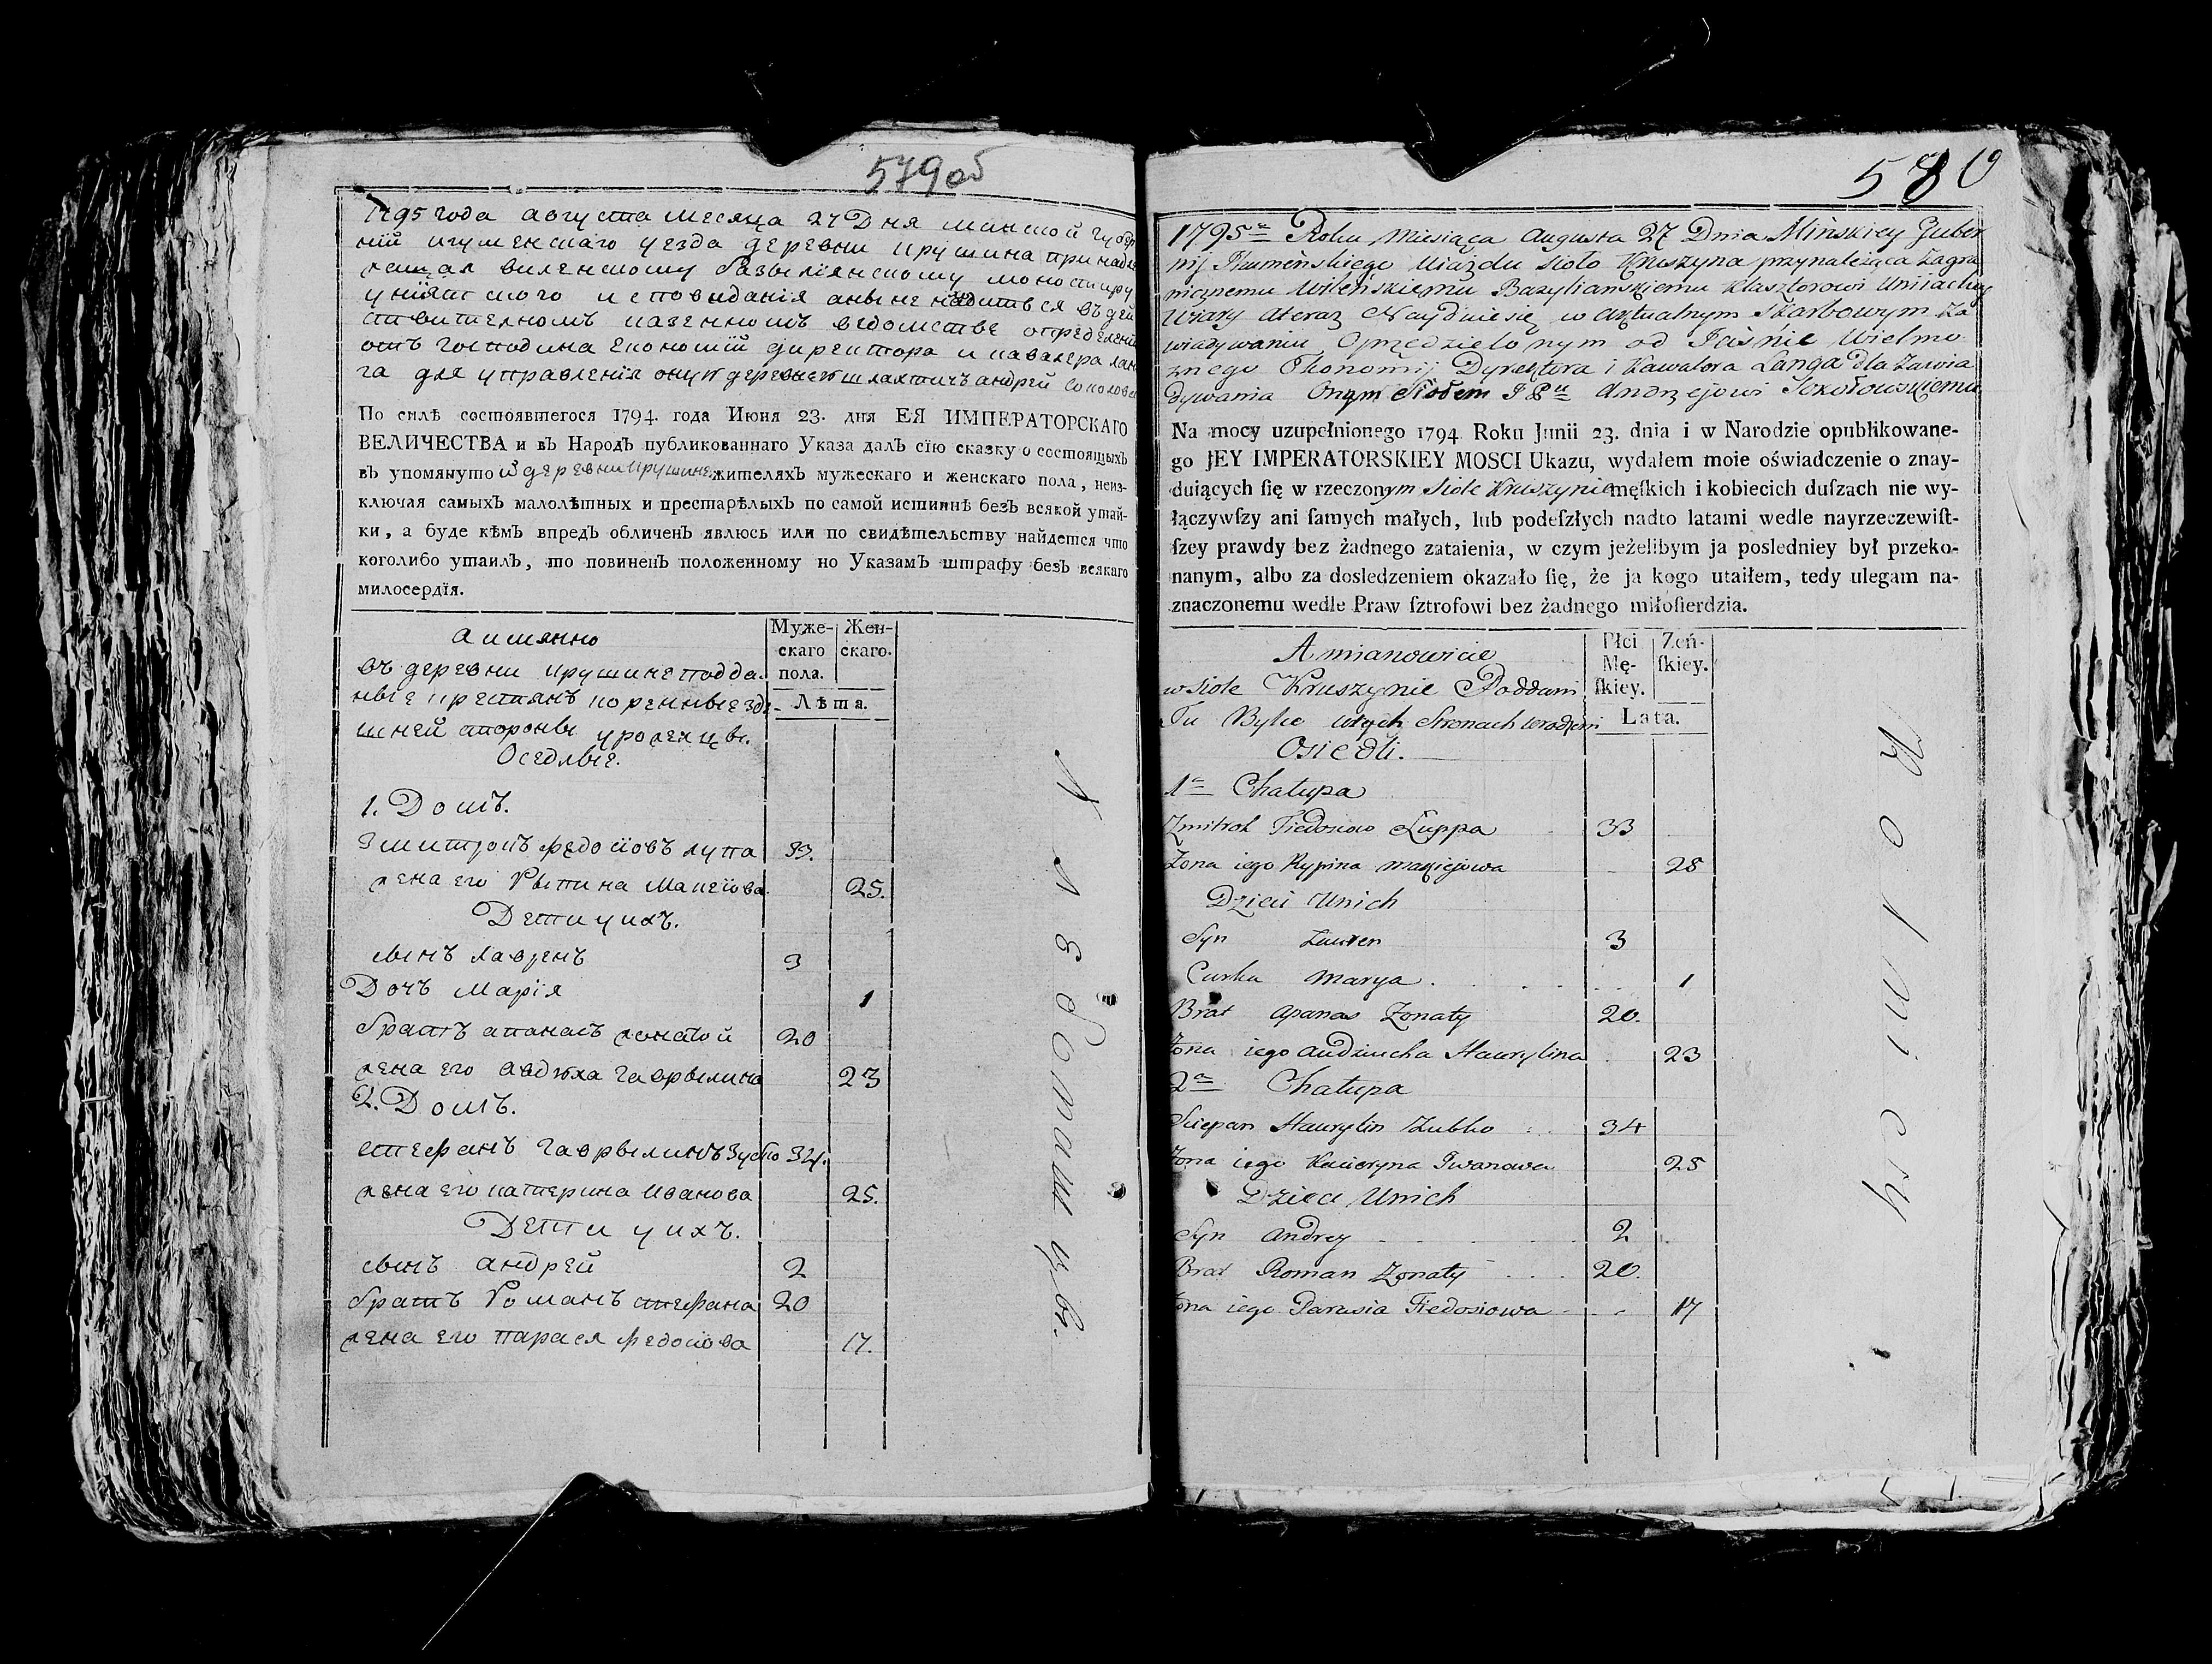 579об
1795 года августа месяца 27 Дня минской губер
нїи игуменскаго уезда деревни крушина принадле
жащая виленскому базылїянскому монастыру
унїятского исповиданїя аныне находиться въ дей
ствителномъ казенномъ ведомстве определенн
отъ господина економїи директора и кавалера лан
га для управленїя онуй деревней шляхтичъ андрей соколовс
По силѣ состоявшегося 1794. года Июня 23. дня ЕЯ ИМПЕРАТОРСКАГО
ВЕЛИЧЕСТВА и въ Народъ публикованнаго Указа далъ сїю сказку о состоящыхъ
въ упомянутой деревни крушине жителяхъ мужескаго и женскаго пола, неиз-
ключая самыхъ малолѣтных и престарѣлыхъ по самой истиннѣ безъ всякой утай-
ки, а буде кѣмъ впредъ обличенъ явлюсь или по свидѣтельству найдется что
коголибо утаилъ, то повиненъ положенному по Указамъ штрафу безъ всякаго
милосердїя.
а имянно
Муже-скаго пола.
Жен-скаго.
Лѣта.
въ деревни крушине подда-
ные крестянъ коренные зде-
шней стороны уроженцы.
Оседлые.
1. Домъ.
Змитрокъ федосїовъ лупа 33.
жена его Рыпина Мацеїова 25.
Дети у ихъ.
сынъ лавренъ 3
Дочъ Марїя 1
братъ апанасъ жонатой 20
жена его авдюха гаврылина 23
2. Домъ.
стефанъ гаврылинъ зубко 34.
жена его катерина иванова 25.
Дети у ихъ.
сынъ андрей 2
братъ Романъ стефана 20
жена его парася федосїова 17.
580
1795go Roku Miesiąca Augusta 27 Dnia Mińskiey Guber
nij Ihumeńskiego Uiazdu sioło Kruszyna przynależąca Zagra
nicznemu Wileńskiemu Bazyliańskiemu Klasztorowi Uniiackiey
Wiary Ateraz Nayduie się w aktualnym Skarbowym Za
wiadywaniu Oprzedzielonym od Jaśnie Wielmo
żnego Ekonomij Dyrektora i Kawalora Langa dla Zawia
dywania Onym Siołem J Pu Andrzejowi Sokołowskiemu
Na mocy uzupełnionego 1794 Roku Junii 23. dnia i w Narodzie opublikowane-
go JEY IMPERATORSKIEY MOSCI Ukazu, wydałem moie oświadczenie o znay-
duiących ſię w rzeczonym Siole Kruszynie męſkich i kobiecich duſzach nie wy-
łączywſzy ani ſamych małych, lub podeſzłych nadto latami wedle nayrzeczewiſt-
ſzey prawdy bez żadnego zataienia, w czym jeżelibym ja posledniey był przeko-
nanym, albo za dosledzeniem okazało ſię, że ja kogo utaiłem, tedy ulegam na-
znaczonemu wedle Praw ſztrofowi bez żadnego miłoſierdzia.
Amianowicie
Płci Mę-ſkiey.
Zeń-ſkiey.
Lata.
w Siole Kruszynie Poddani
Tu Bylce wtych Stronach urodzeni
Osiedli.
1a Chałupa
Zmitrok Fiedosiow Łuppa 33
Żona iego Rypina Macieiowa 25
Dzieci Unich
Syn Ławren 3
Curka Marya 1
Brat Apanas Żonaty 20.
Żona iego Audziucha Hawrylina 23
2a Chałupa
Sciepan Hawrylin Zubko 34
Żona iego Kacieryna Iwanowa 25
Dzieci Unich
Syn Andrey 2
Brat Roman Żonaty 20.
Żona iego Parasia Fiedosiowa 17